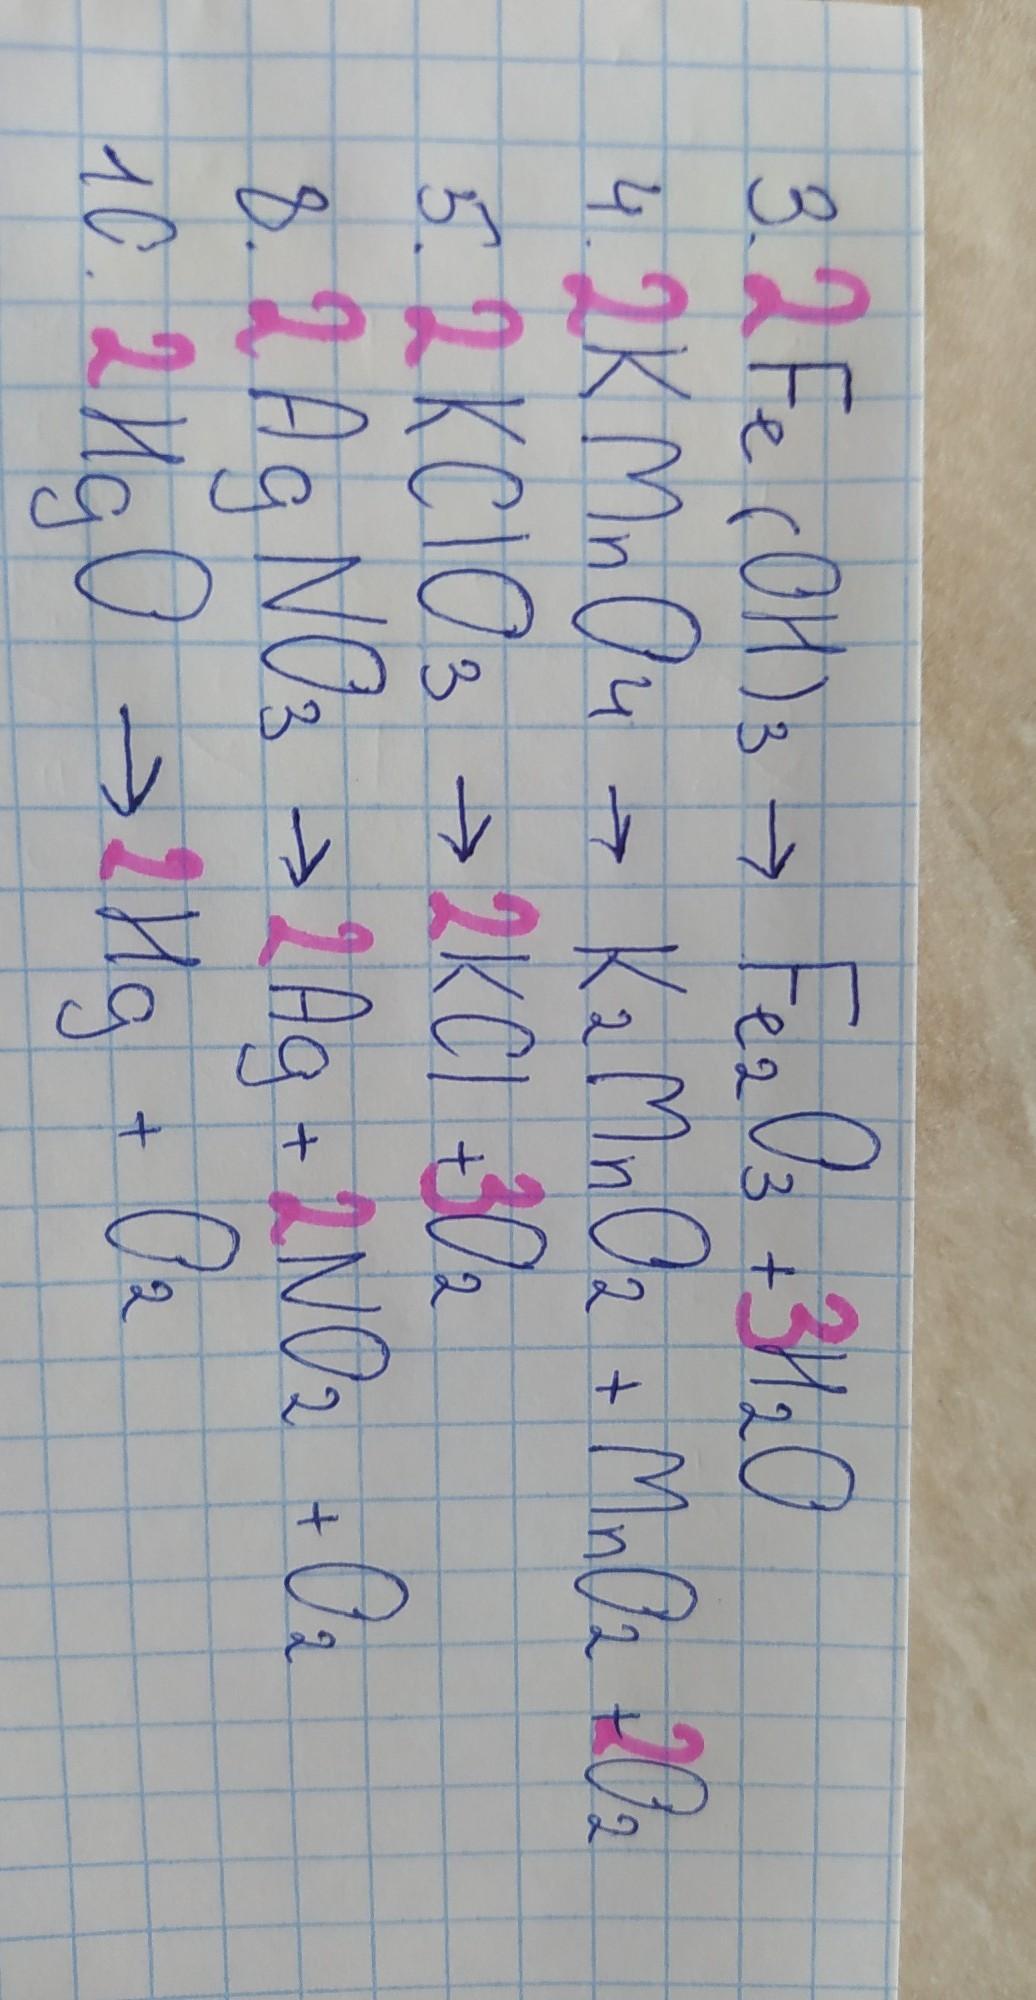 3. 2Fe(OH)₃ → Fe₂O₃ + 3H₂O
4. 2KMnO₄ → K₂MnO₂ + MnO₂ + 2O₂
5. 2KClO₃ → 2KCl + 3O₂
8. 2AgNO₃ → 2Ag + 2NO₂ + O₂
10. 2HgO → 2Hg + O₂